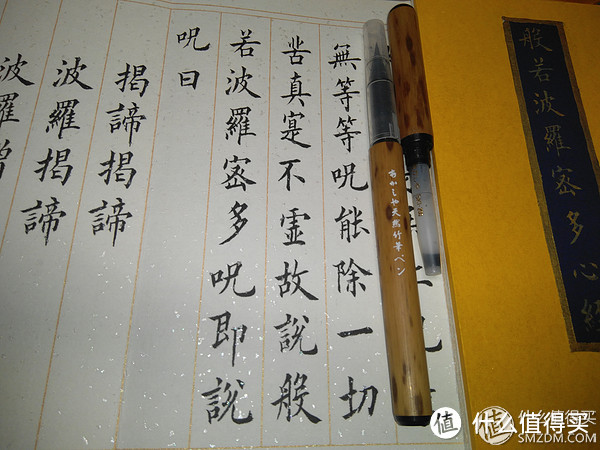 般若波羅密多心經
無等等呪能除一切
苦真寔不虛故說般
若波羅密多呪即說
呪曰
揭諦揭諦
波羅揭諦
波羅僧
あかしや天然竹筆ペン
值 什么值得买
值 什么值得买
SMZDM.COM